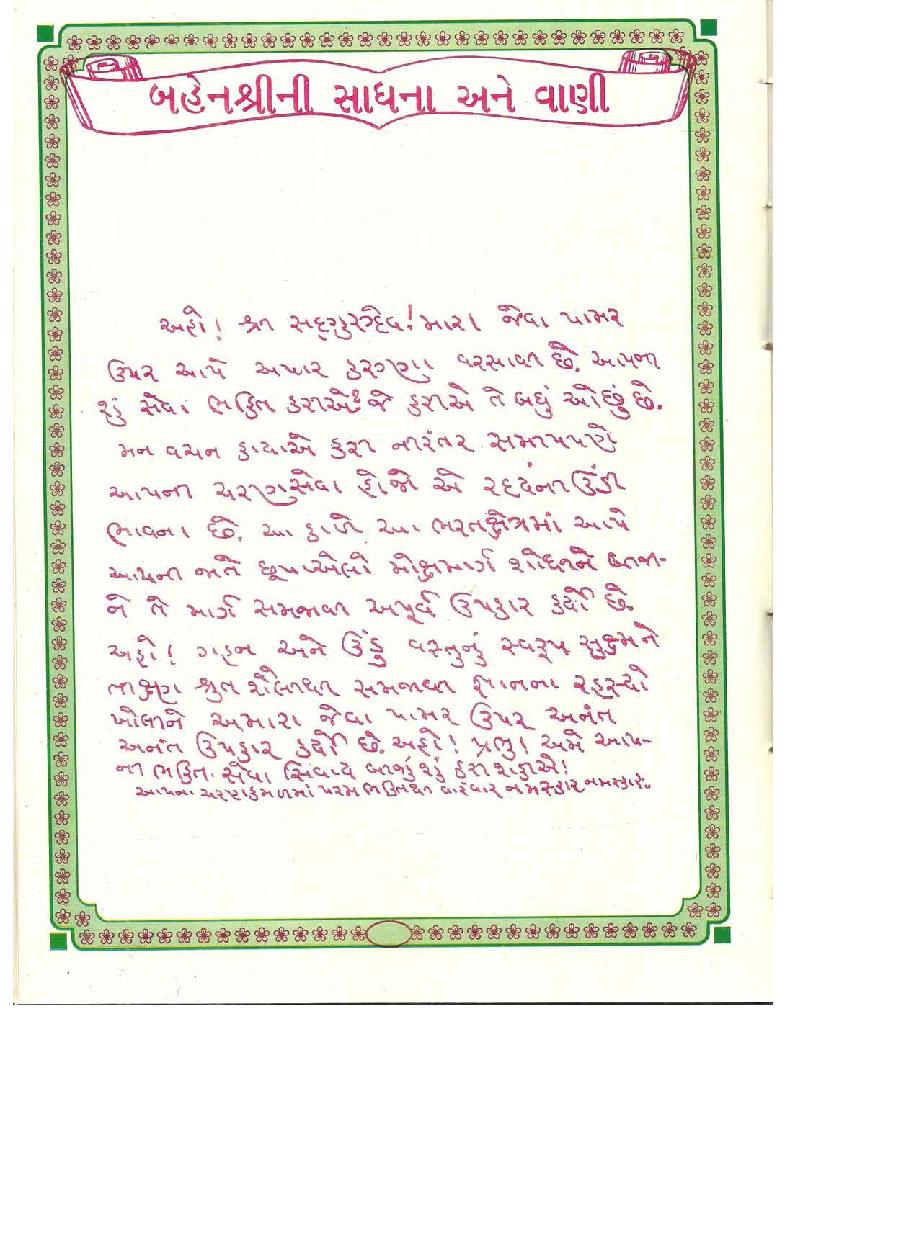 બહેનશ્રીની સાધના અને વાણી
અહો! શ્રી સદ્ગુરુદેવ! મારા જેવા પામર
ઉપર આપે અપાર કરુણા વરસાવી છે. આપની
શું સેવા ભક્તિ કરીએ? જે કરીએ તે બધું ઓછું છે.
મન વચન કાયાએ કરી નીરંતર સમીપપણે
આપની ચરણસેવા હોજો એ હૃદયની ઉંડી
ભાવના છે. આ કાળે આ ભરતક્ષેત્રમાં આપે
આપની જાતે છૂપાએલો મોક્ષમાર્ગ શોધીને બીજા-
ને તે માર્ગ સમજાવી અપૂર્વ ઉપકાર કર્યો છે.
અહો! ગહન અને ઉંડું વસ્તુનું સ્વરૂપ સુક્ષ્મ ને
તીક્ષ્ણ શ્રુત શૈલીથી સમજાવી જ્ઞાનના રહસ્યો
ખોલીને અમારા જેવા પામર ઉપર અનંત
અનંત ઉપકાર કર્યો છે. અહો! પ્રભુ! અમે આપ-
ની ભક્તિ સેવા સિવાય બીજું શું કરી શકીએ!
આપના ચરણકમળમાં પરમ ભક્તિથી વારંવાર નમસ્કાર નમસ્કાર.